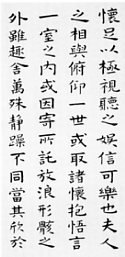 懷足以極視聽之娛信可樂也夫人
之相與俯仰一世或取諸懷抱悟言
一室之內或因寄所託放浪形骸之
外雖趣舍萬殊静躁不同當其欣於